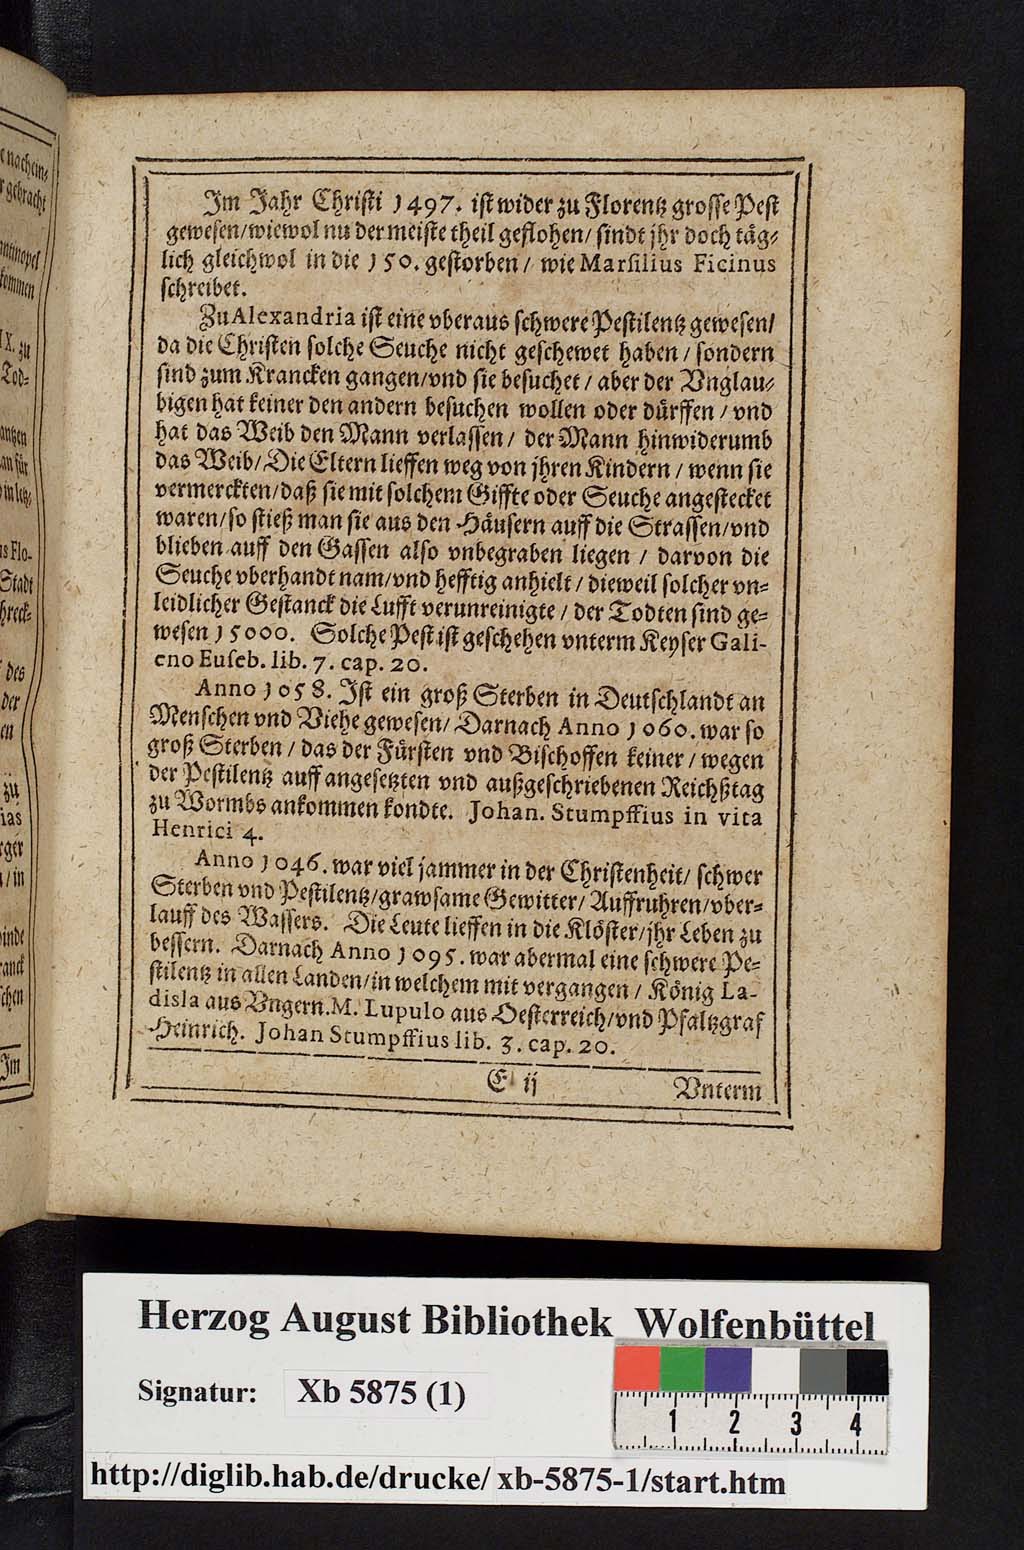 e nachein-
r gebracht
kommen
IX. zu
Tod-
antzen
an für
us Flo-
Stadt
des
der
en
zu
ias
in
Im
Im Jahr Christi 1497. ist wider zu Florentz grosse Pest
gewesen/wiewol nu der meiste theil geflohen/ sindt jhr doch täg-
lich gleichwol in die 150. gestorben/ wie Marsilius Ficinus
schreibet.
Zu Alexandria ist eine vberaus schwere Pestilentz gewesen/
da die Christen solche Seuche nicht geschewet haben/ sondern
sind zum Krancken gangen/vnd sie besuchet/ aber der Vnglau-
bigen hat keiner den andern besuchen wollen oder dürffen/ vnd
hat das Weib den Mann verlassen/ der Mann hinwiderumb
das Weib/ Die Eltern lieffen weg von jhren Kindern/ wenn sie
vermerckten/daß sie mit solchem Giffte oder Seuche angestecket
waren/so stieß man sie aus den Häusern auff die Strassen/vnd
blieben auff den Gassen also vnbegraben liegen/ darvon die
Seuche vberhandt nam/vnd hefftig anhielt/ dieweil solcher vn-
leidlicher Gestanck die Lufft verunreinigte/ der Todten sind ge-
wesen 15000. Solche Pest ist geschehen vnterm Keyser Gali-
eno Euseb. lib. 7. cap. 20.
Anno 1058. Ist ein groß Sterben in Deutschlandt an
Menschen vnd Viehe gewesen/ Darnach Anno 1060. war so
groß Sterben/ das der Fürsten vnd Bischoffen keiner/ wegen
der Pestilentz auff angesetzten vnd außgeschriebenen Reichßtag
zu Wormbs ankommen kondte. Johan. Stumpffius in vita
Henrici 4.
Anno 1046. war viel jammer in der Christenheit/ schwer
Sterben vnd Pestilentz/grawsame Gewitter/ Auffruhren/vber-
lauff des Wassers. Die Leute lieffen in die Klöster/jhr Leben zu
bessern. Darnach Anno 1095. war abermal eine schwere Pe-
stilentz in allen Landen/in welchem mit vergangen/ König La-
disla aus Vngern. M. Lupulo aus Oesterreich/vnd Pfaltzgraf
Heinrich. Johan Stumpffius lib. 3. cap. 20.
E ij Vnterm
Herzog August Bibliothek Wolfenbüttel
Signatur: Xb 5875 (1)
1 2 3 4
http://diglib.hab.de/drucke/ xb-5875-1/start.htm